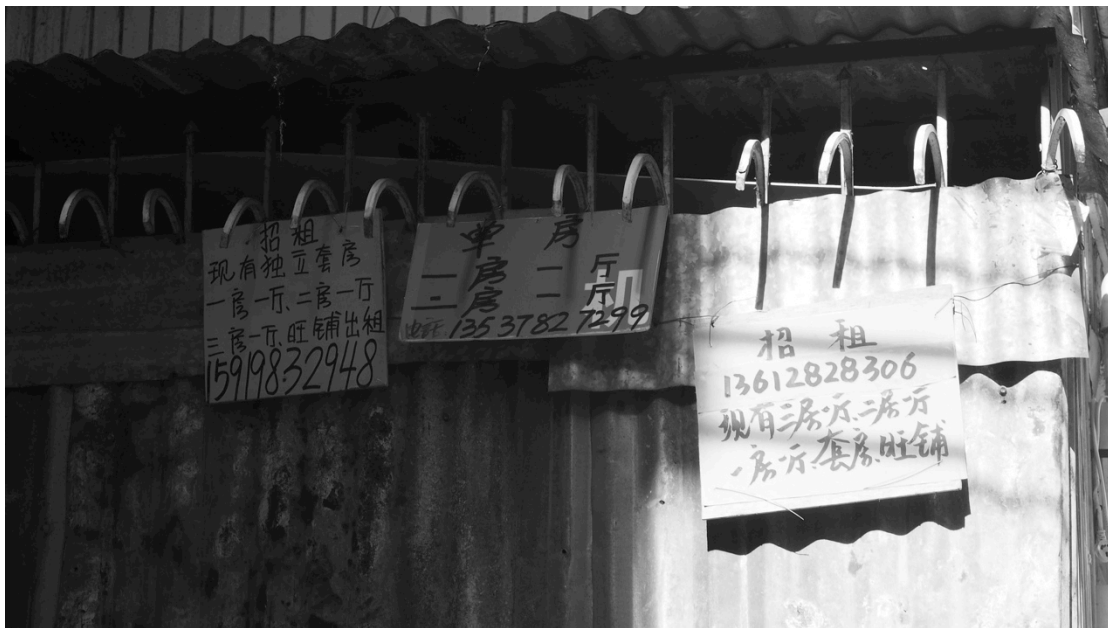 招租
现有独立套房
一房一厅、二房一厅
三房一厅、旺铺出租
15919832948
单房
一房一厅
二房一厅
电话13537827299
招租
13612828306
现有三房一厅、二房一厅
一房一厅、套房、旺铺